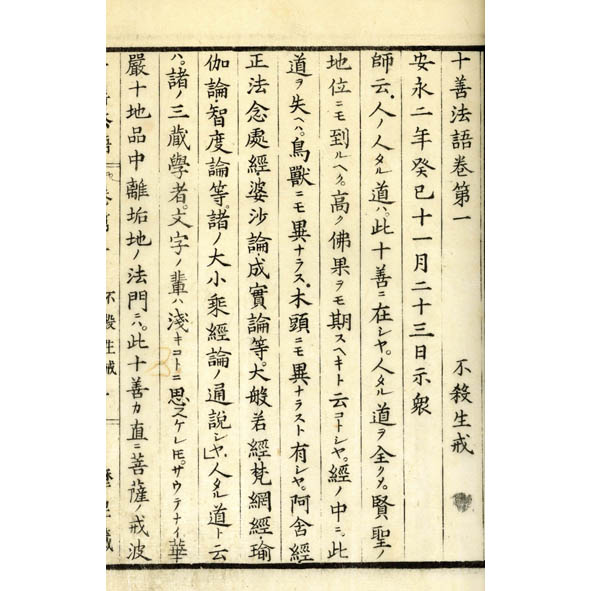 十善法語卷第一　不殺生戒
安永二年癸巳十一月二十三日示衆
師云。人ノ人タル道ハ。此十善ニ在シヤ。人タル道ヲ全クメ。賢聖ノ
地位ニモ到ルヘク。高ク佛果ヲモ期スヘキト云コトシヤ。經ノ中ニ。此
道ヲ失ヘハ。鳥獸ニモ異ナラス。木頭ニモ異ナラスト有シヤ。阿含經
正法念處經。婆沙論。成實論等。大般若經。梵網經。瑜
伽論。智度論等。諸ノ大小乘經論ノ通説シヤ。人タル道ト云
ハ。諸ノ三藏學者。文字ノ輩ハ淺キコトニ思フケレトモ。サウテナイ。華
嚴十地品中離垢地ノ法門ニハ。此十善カ直ニ菩薩ノ戒波
不殺生戒